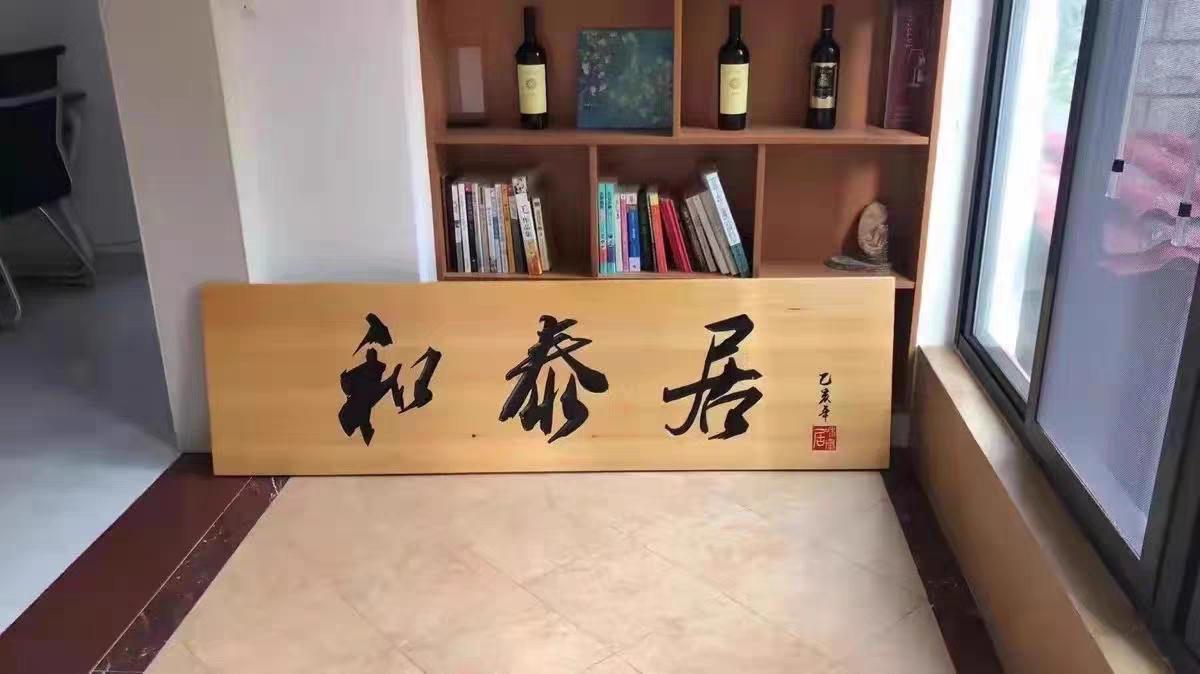 和泰居
乙亥年